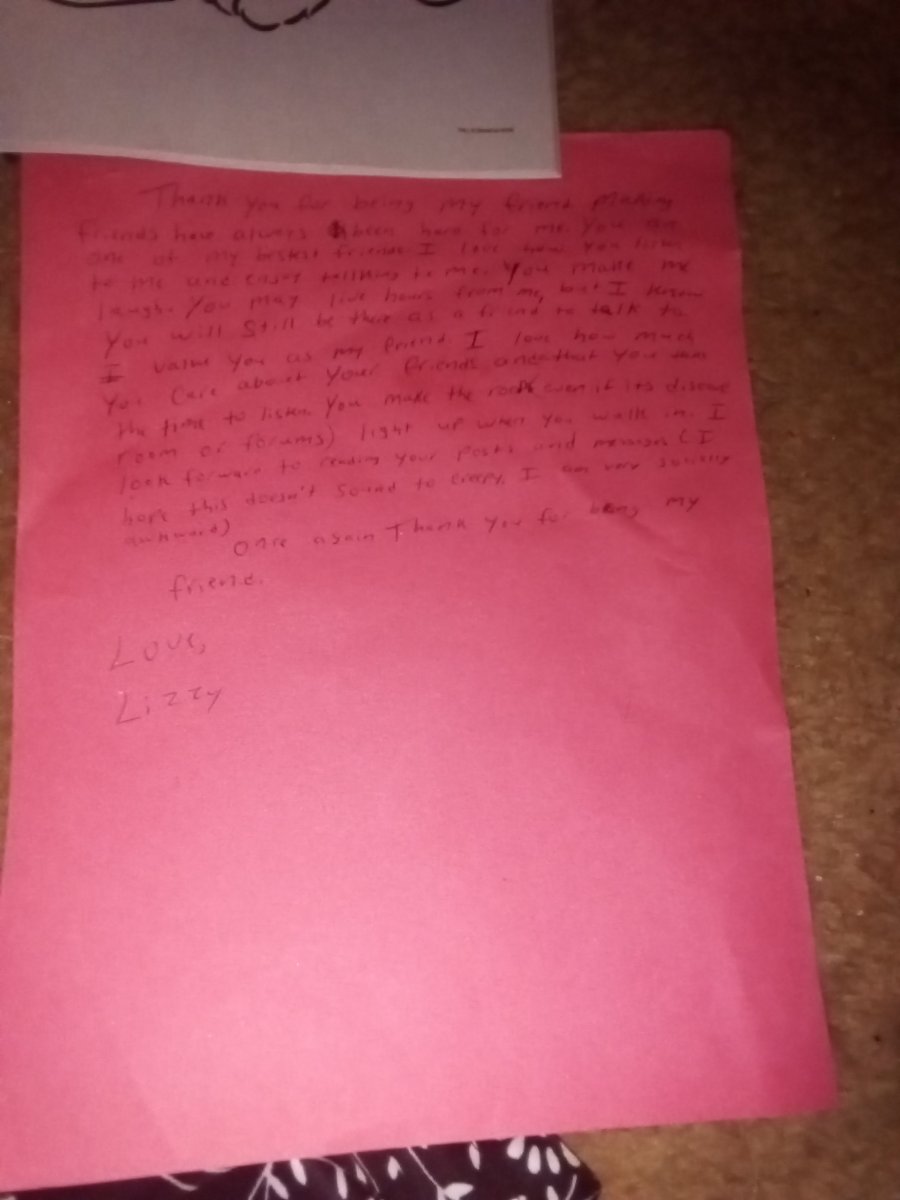 Thank you for being my friend Making
friends have always been hard for me. You are
one of my bestest friends I love how you listen
to me and enjoy tallking to me. You make me
laugh. You may live hours from me, but I know
you will still be there as a friend to talk to
I value you as my friend. I love how much
you care about your friends and that you take
the time to listen. You make the room even if its discord
room or forums) light up when you walk in. I
look forward to reading your posts and messages (I
hope this doesn't sound to creepy, I am very socially
awkward)
Once again Thank you for being my
friend.
Love,
Lizzy